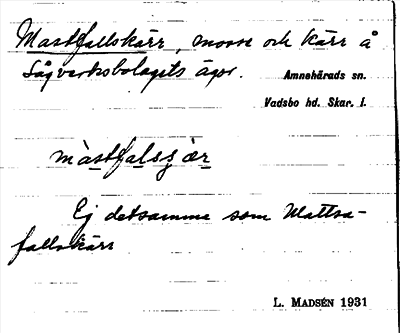 Mastfallskärr, mosse och kärr å
Sågverksbolagets ägor.
Amnehärads sn.
Vadsbo hd. Skar. l.
màstfalsɟær
Ej detsamma som Mattsa-
fallskärr
L. MADSÉN 1931